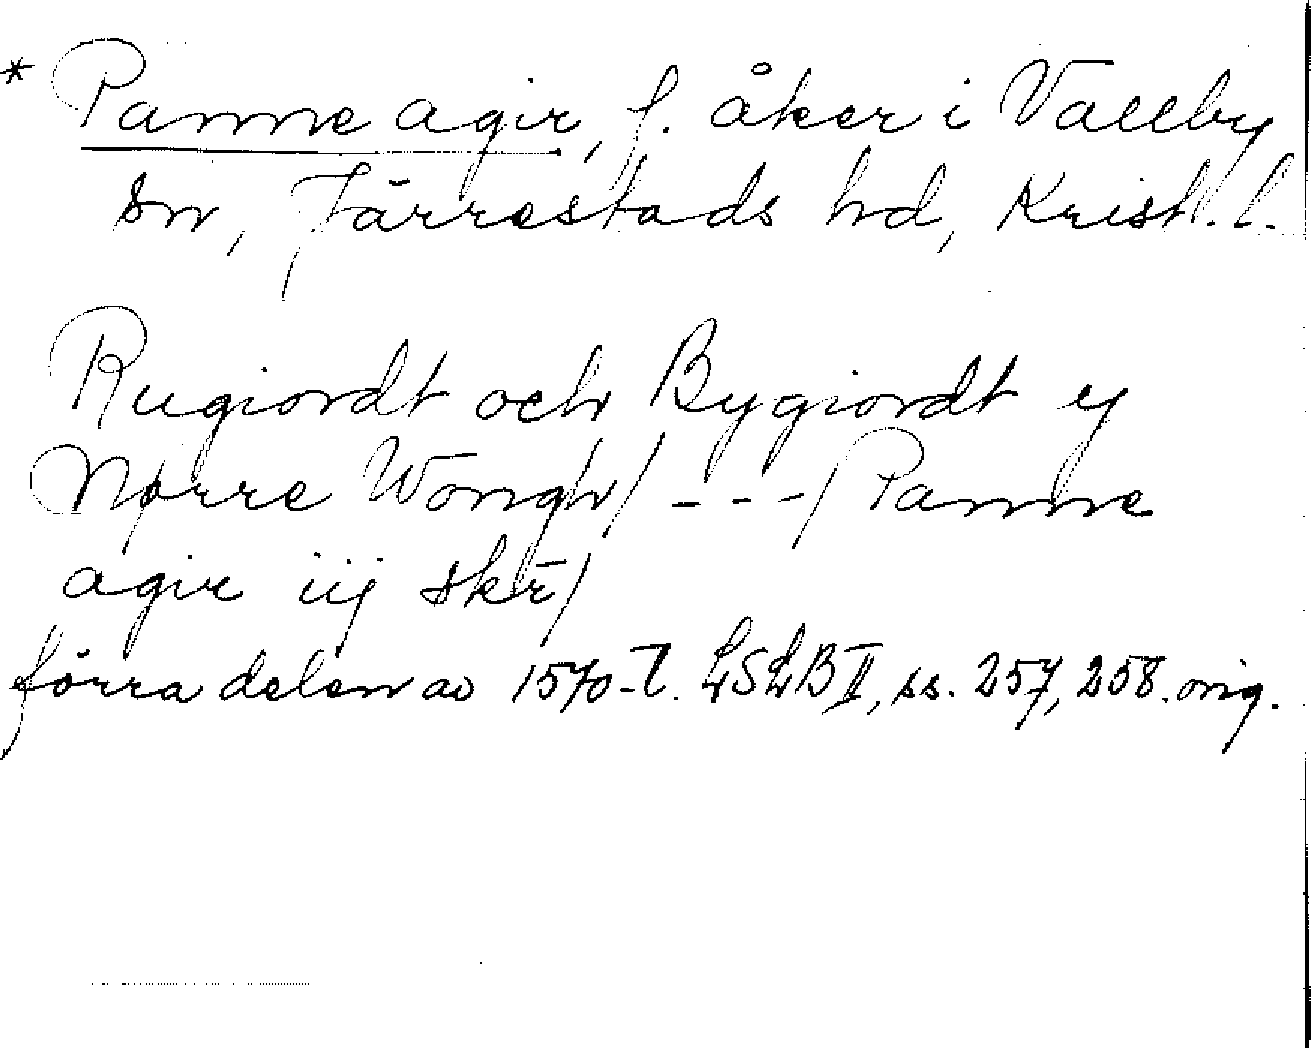 * Panne agir, f. åker i Vallby
sn, Järrestads hd, Krist. l.
Rugiordt och Bygiordt y
Nørre Wongh / - - - / Panne
agir iij skr̄ /
förra delen av 1570-t. LSLB II, ss. 257, 258. orig.